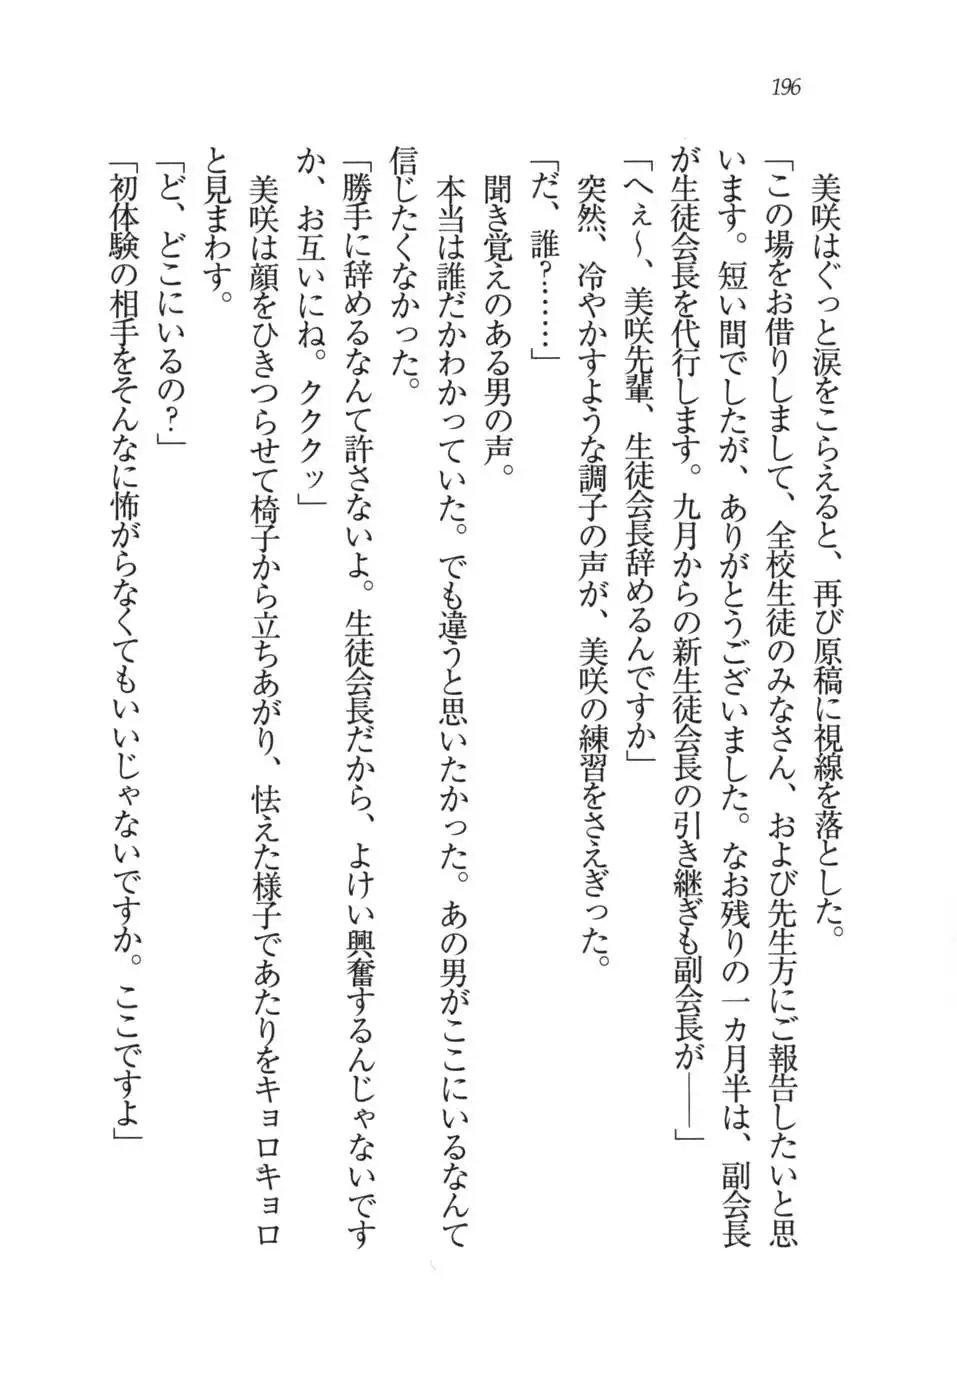 196
美咲はぐっと涙をこらえると、再び原稿に視線を落とした。
「この場をお借りしまして、全校生徒のみなさん、および先生方にご報告したいと思
います。短い間でしたが、ありがとうございました。なお残りの一カ月半は、副会長
が生徒会長を代行します。九月からの新生徒会長の引き継ぎも副会長が――」
「へぇ～、美咲先輩、生徒会長辞めるんですか」
突然、冷やかすような調子の声が、美咲の練習をさえぎった。
「だ、誰？……」
聞き覚えのある男の声。
本当は誰だかわかっていた。でも違うと思いたかった。あの男がここにいるなんて
信じたくなかった。
「勝手に辞めるなんて許さないよ。生徒会長だから、よけい興奮するんじゃないです
か、お互いにね。クククッ」
美咲は顔をひきつらせて椅子から立ちあがり、怯えた様子であたりをキョロキョロ
と見まわす。
「ど、どこにいるの？」
「初体験の相手をそんなに怖がらなくてもいいじゃないですか。ここですよ」